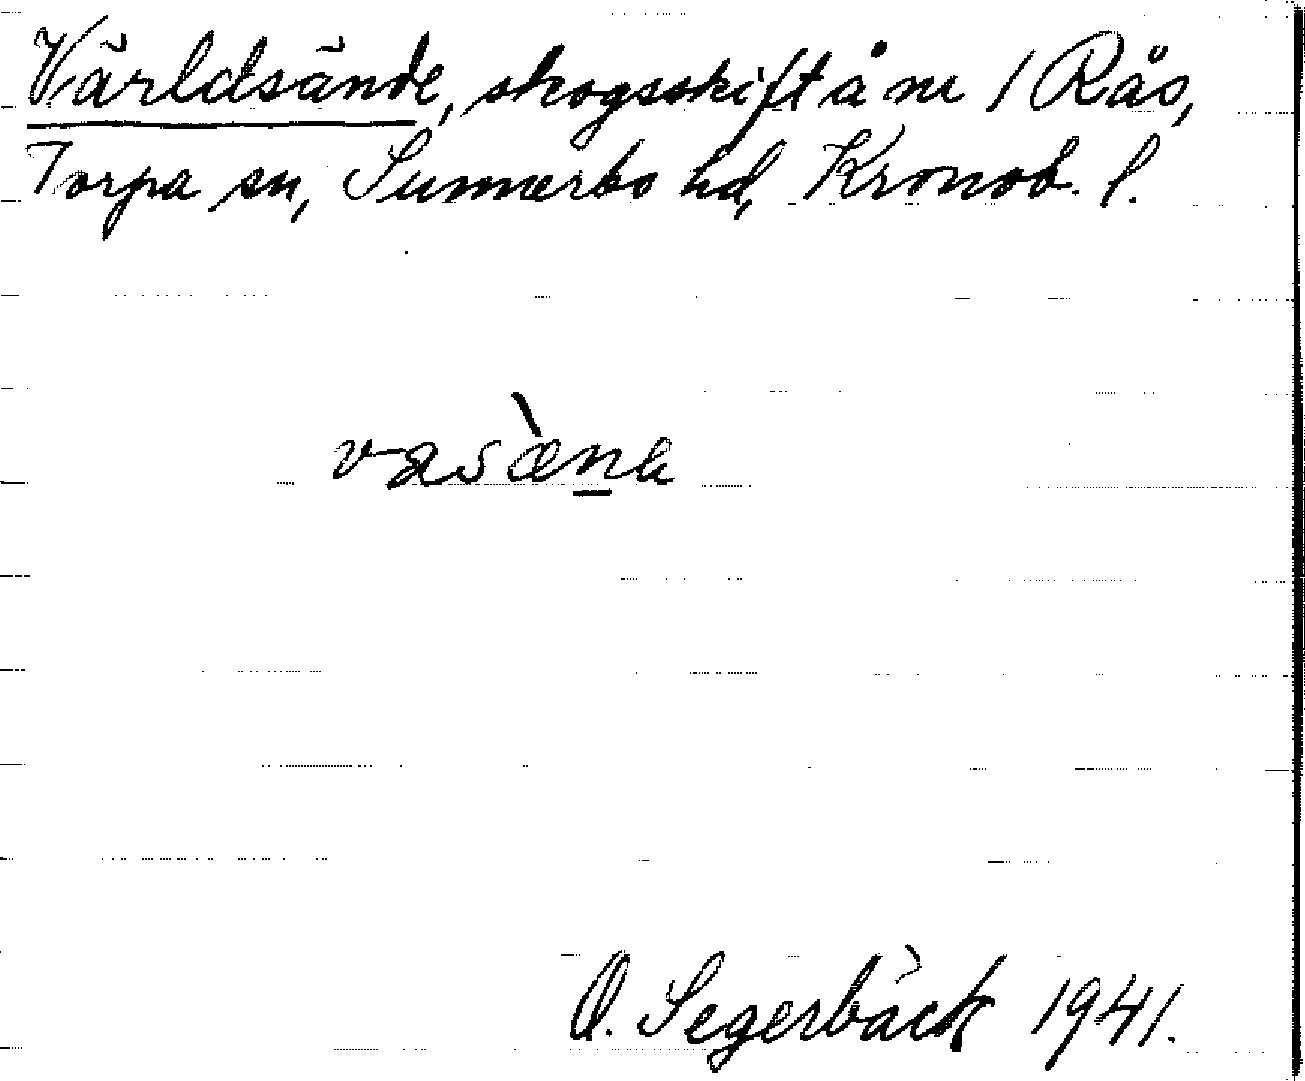 Världsände, skogsskift å nr 1 Rås,
Torpa sn, Sunnerbo hd, Kronob. l.
vasæ̀n̲a
O. Segerbäck 1941.